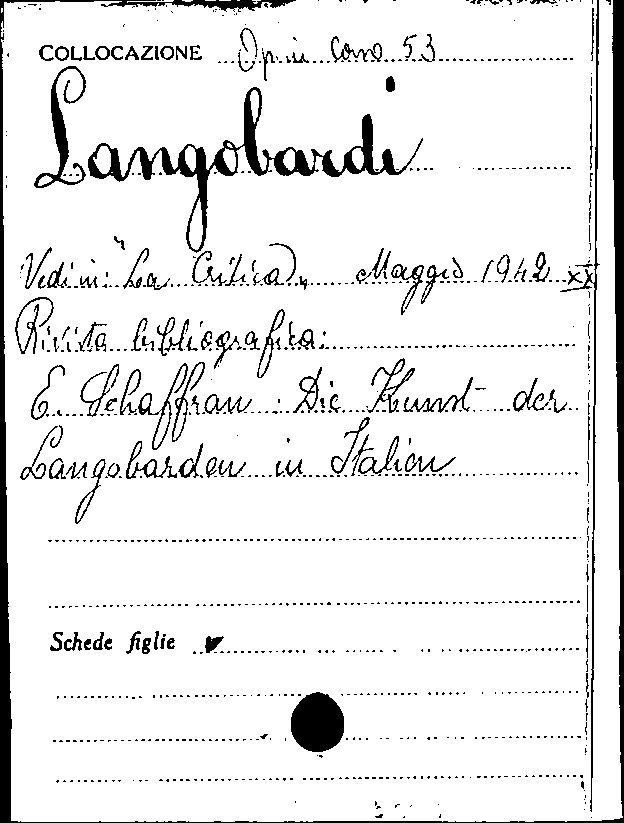 COLLOCAZIONE Op. in Corso 53
Langobardi
Vedi in: "La Critica„ Maggio 1942 XX
Rivista bibliografica:
E. Schaffran : Die Kunst der
Langobarden in Italien
Schede figlie